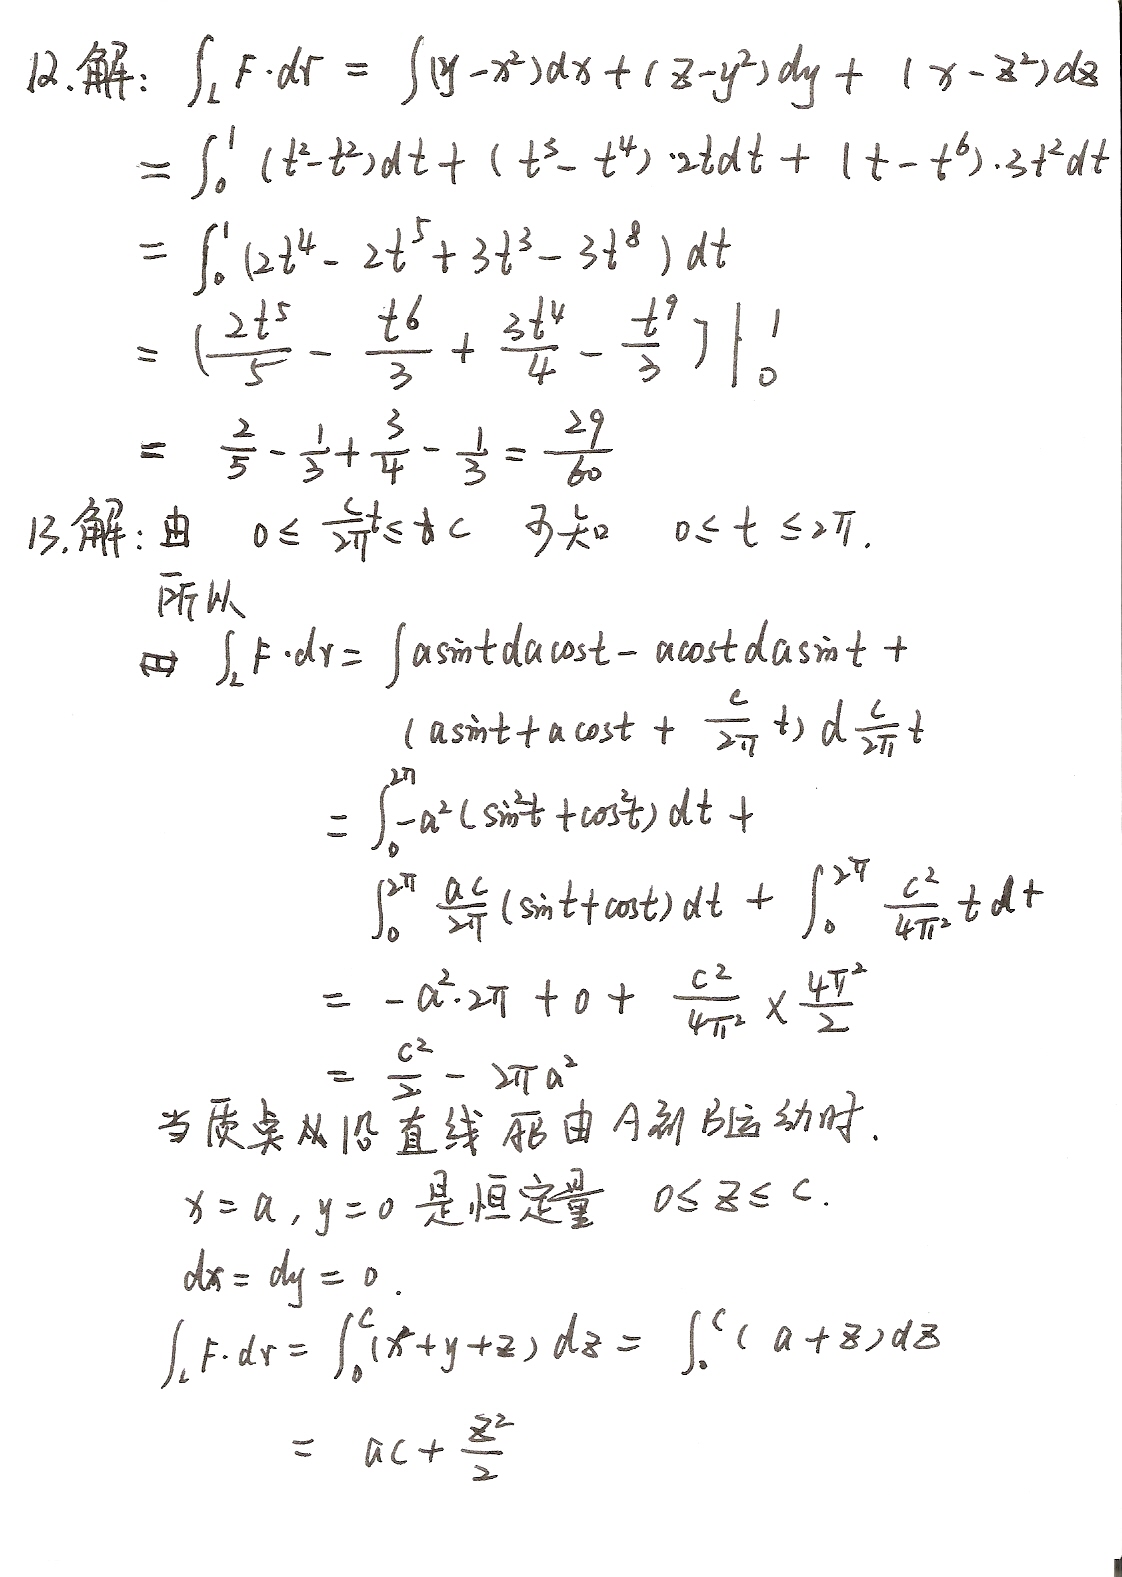 12.解: ∫_L F·dr = ∫(y-x²)dx+(z-y²)dy+(x-z²)dz
= ∫₀¹ (t²-t²)dt+(t³-t⁴)·2tdt+(t-t⁶)·3t²dt
= ∫₀¹ (2t⁴-2t⁵+3t³-3t⁸)dt
= (2t⁵/5 - t⁶/3 + 3t⁴/4 - t⁹/3)|₀¹
= 2/5 - 1/3 + 3/4 - 1/3 = 29/60
13.解:由 0≤ c/2π t ≤ c 可知 0≤t≤2π.
所以
∫_L F·dr = ∫asintdacost - acostdasint +
(asint+acost+ c/2π t) d c/2π t
= ∫₀^2π -a²(sin²t+cos²t)dt+
∫₀^2π ac/2π (sint+cost)dt + ∫₀^2π c²/4π² tdt
= -a²·2π + 0 + c²/4π² × 4π²/2
= c²/2 - 2πa²
当质点从沿直线AB由A到B运动时.
x=a, y=0 是恒定量 0≤z≤c.
dx=dy=0.
∫_L F·dr = ∫₀^c (x+y+z)dz = ∫₀^c (a+z)dz
= ac + z²/2